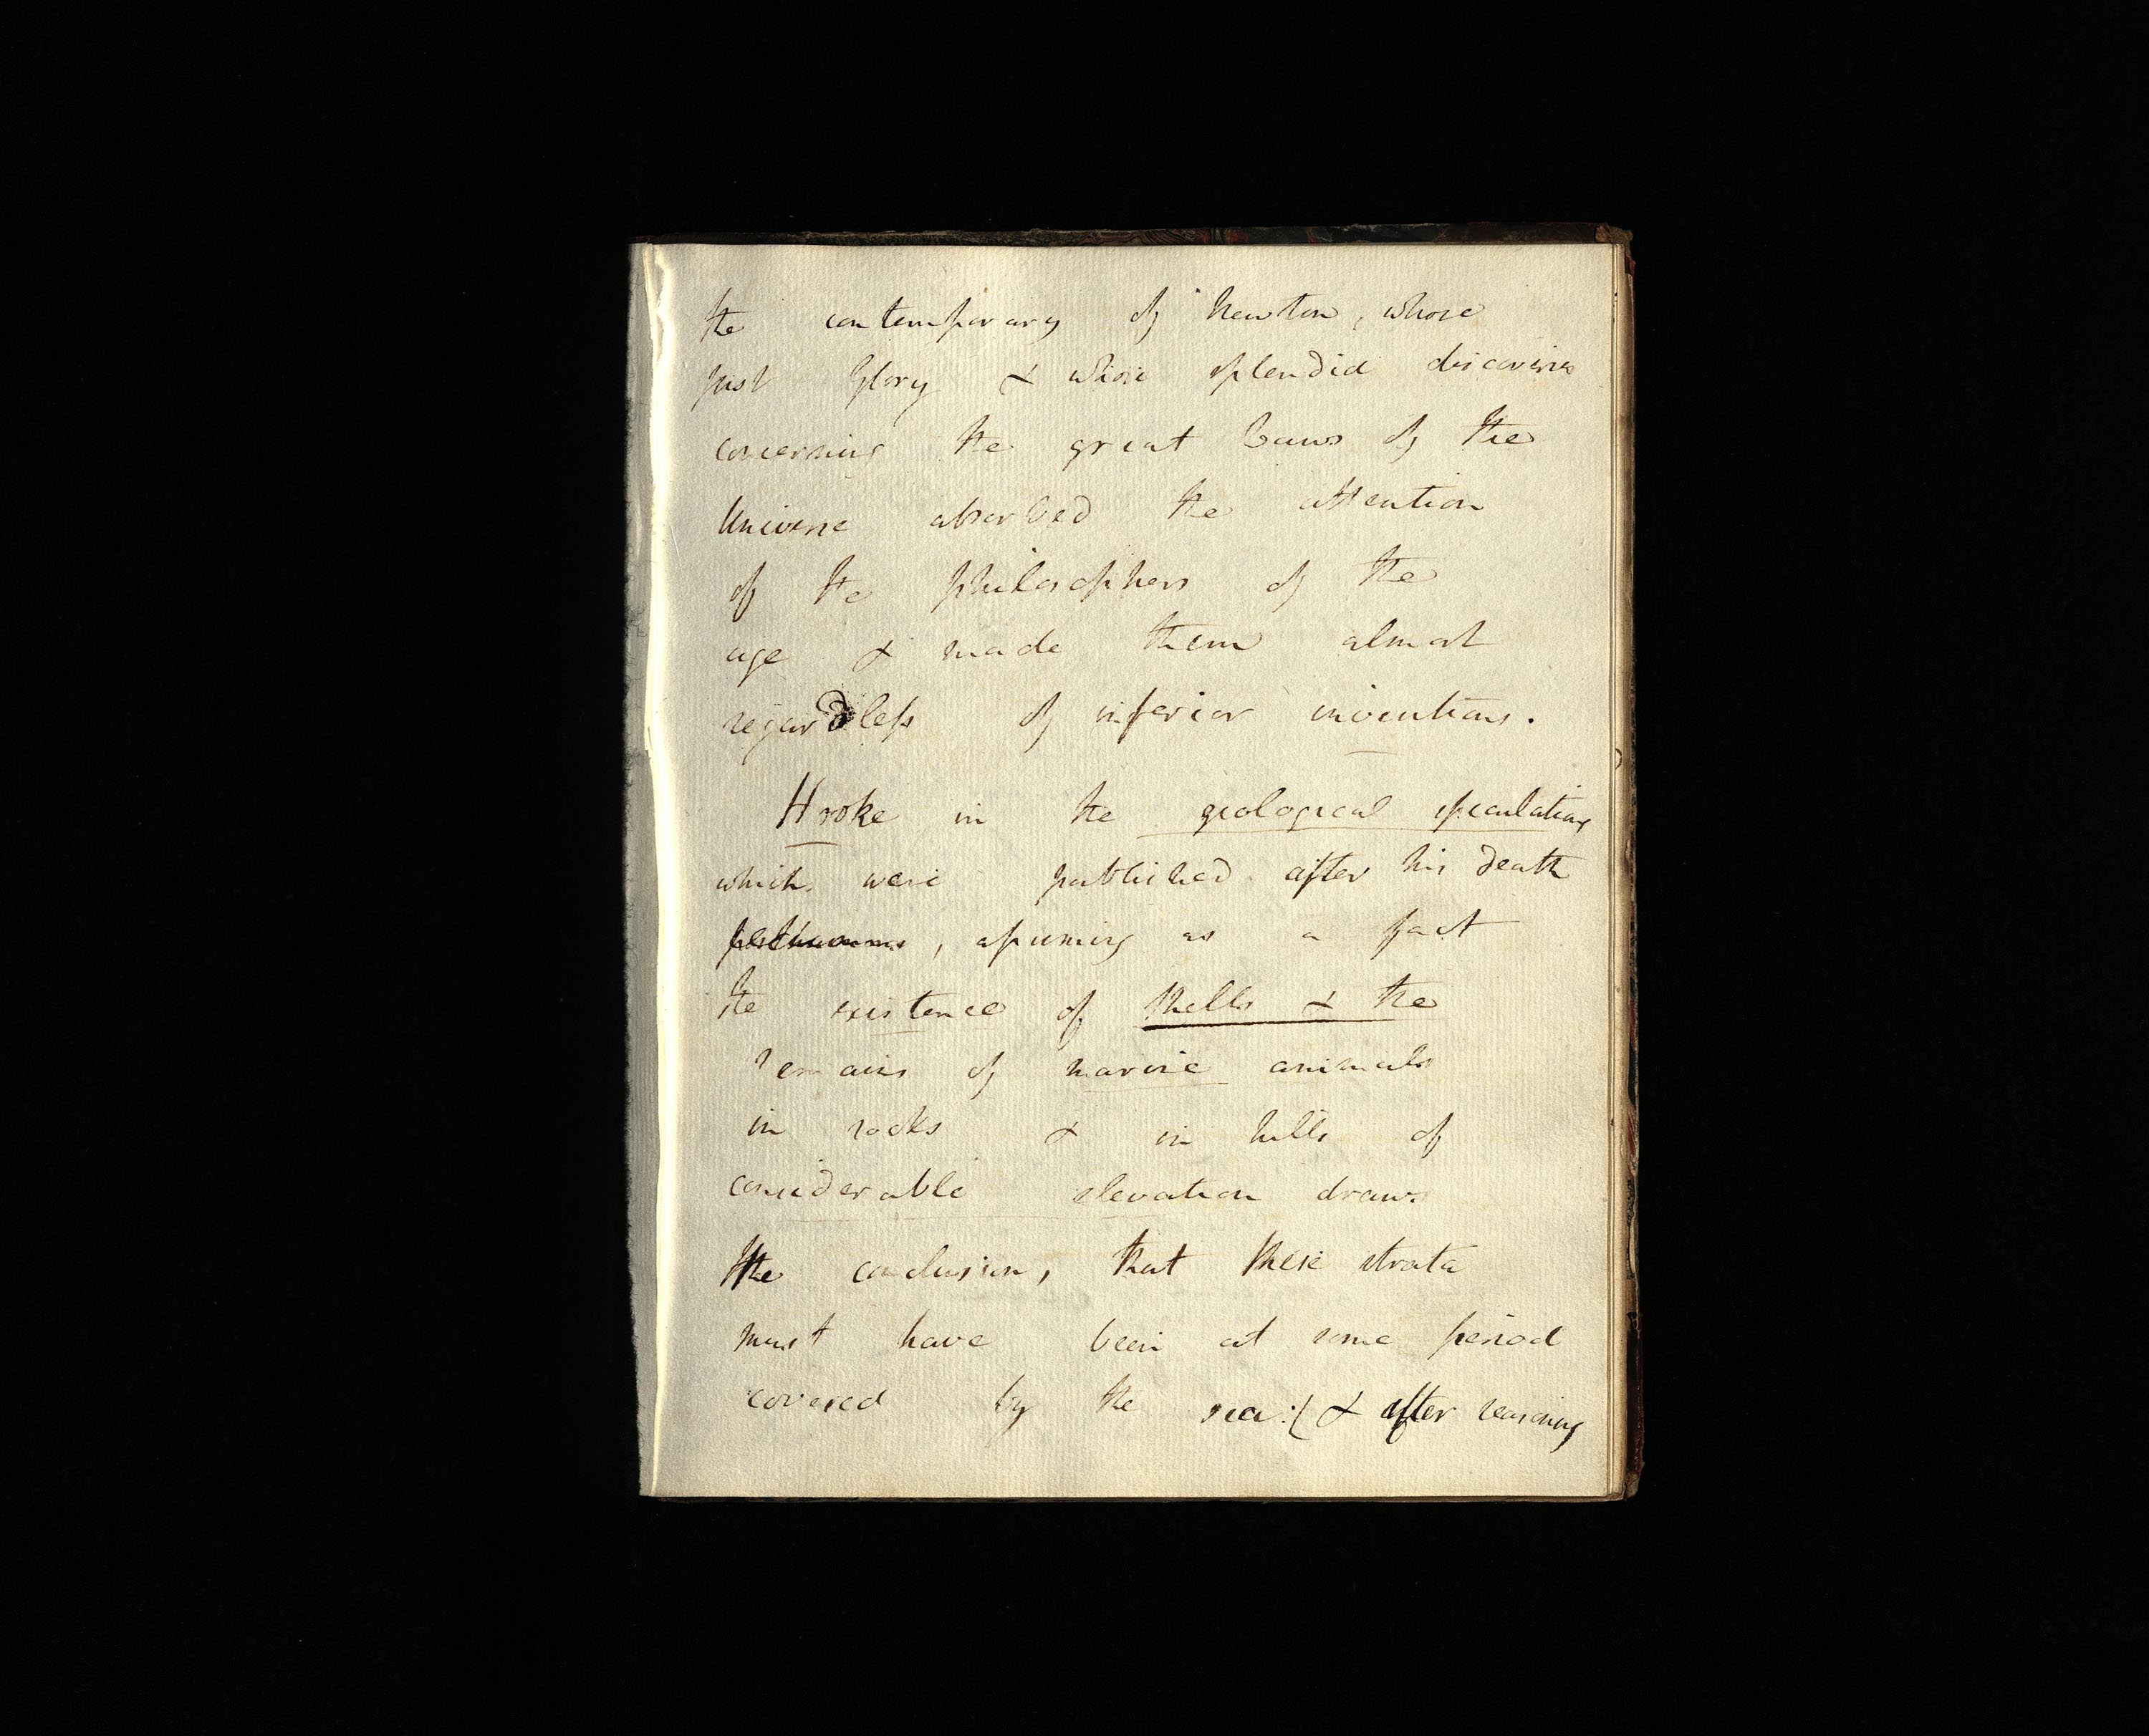 the contemporary of Newton, whose
just glory & whose splendid discoveries
concerning the great Laws of the
Universe absorbed the attention
of the philosophers of the
age & made them almost
regardless of inferior inventions.
Hooke in the geological speculations
which were published after his death
posthumous, assuming as a fact
the existence of shells & the
remains of marine animals
in rocks & in hills of
considerable elevation draws
the conclusion, that these strata
must have been at some period
covered by the sea:( & after reasoning